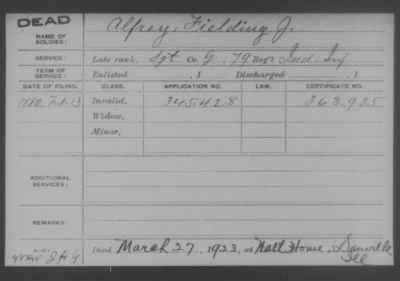 DEAD
NAME OF SOLDIER: Alfrey, Fielding J.
SERVICE: Late rank, Sgt Co. G, 79 Reg't Ind. Inf
TERM OF SERVICE: Enlisted , 1 Discharged , 1
DATE OF FILING. CLASS. APPLICATION NO. LAW. CERTIFICATE NO.
1880, Feb. 13 Invalid, 345.428 363.935
Widow,
Minor,
ADDITIONAL SERVICES:
REMARKS:
Died March 27, 1923, at Natl Home, Danville,
Ill